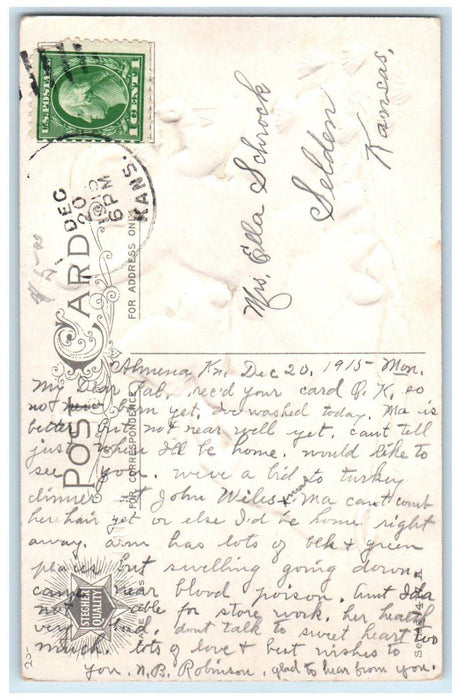 U.S. POSTAGE
1 CENT 1
DEC
20
6 PM
KANS.
POST CARD
FOR ADDRESS ONLY
FOR CORRESPONDENCE
Mrs. Ella Schrock
Selden
Kansas,
Almena Kn. Dec 20, 1915 - Mon.
My Dear Pal, rec'd your card O.K, so
not born yet, I've washed today. Ma is
better but not near well yet. can't tell
just when I'll be home. would like to
see you. we've a bid to turkey
dinner at John Wiles Ma can't comb
her hair yet or else I'd be home right
away. arm has lots of blk + green
places but swelling going down.
came near blood poison. Aunt Ida
not able for store work. her health
very bad. dont talk to sweet heart too
much. lots of love + best wishes to
you. N.B. Robinson, glad to hear from you.
STECHER
QUALITY